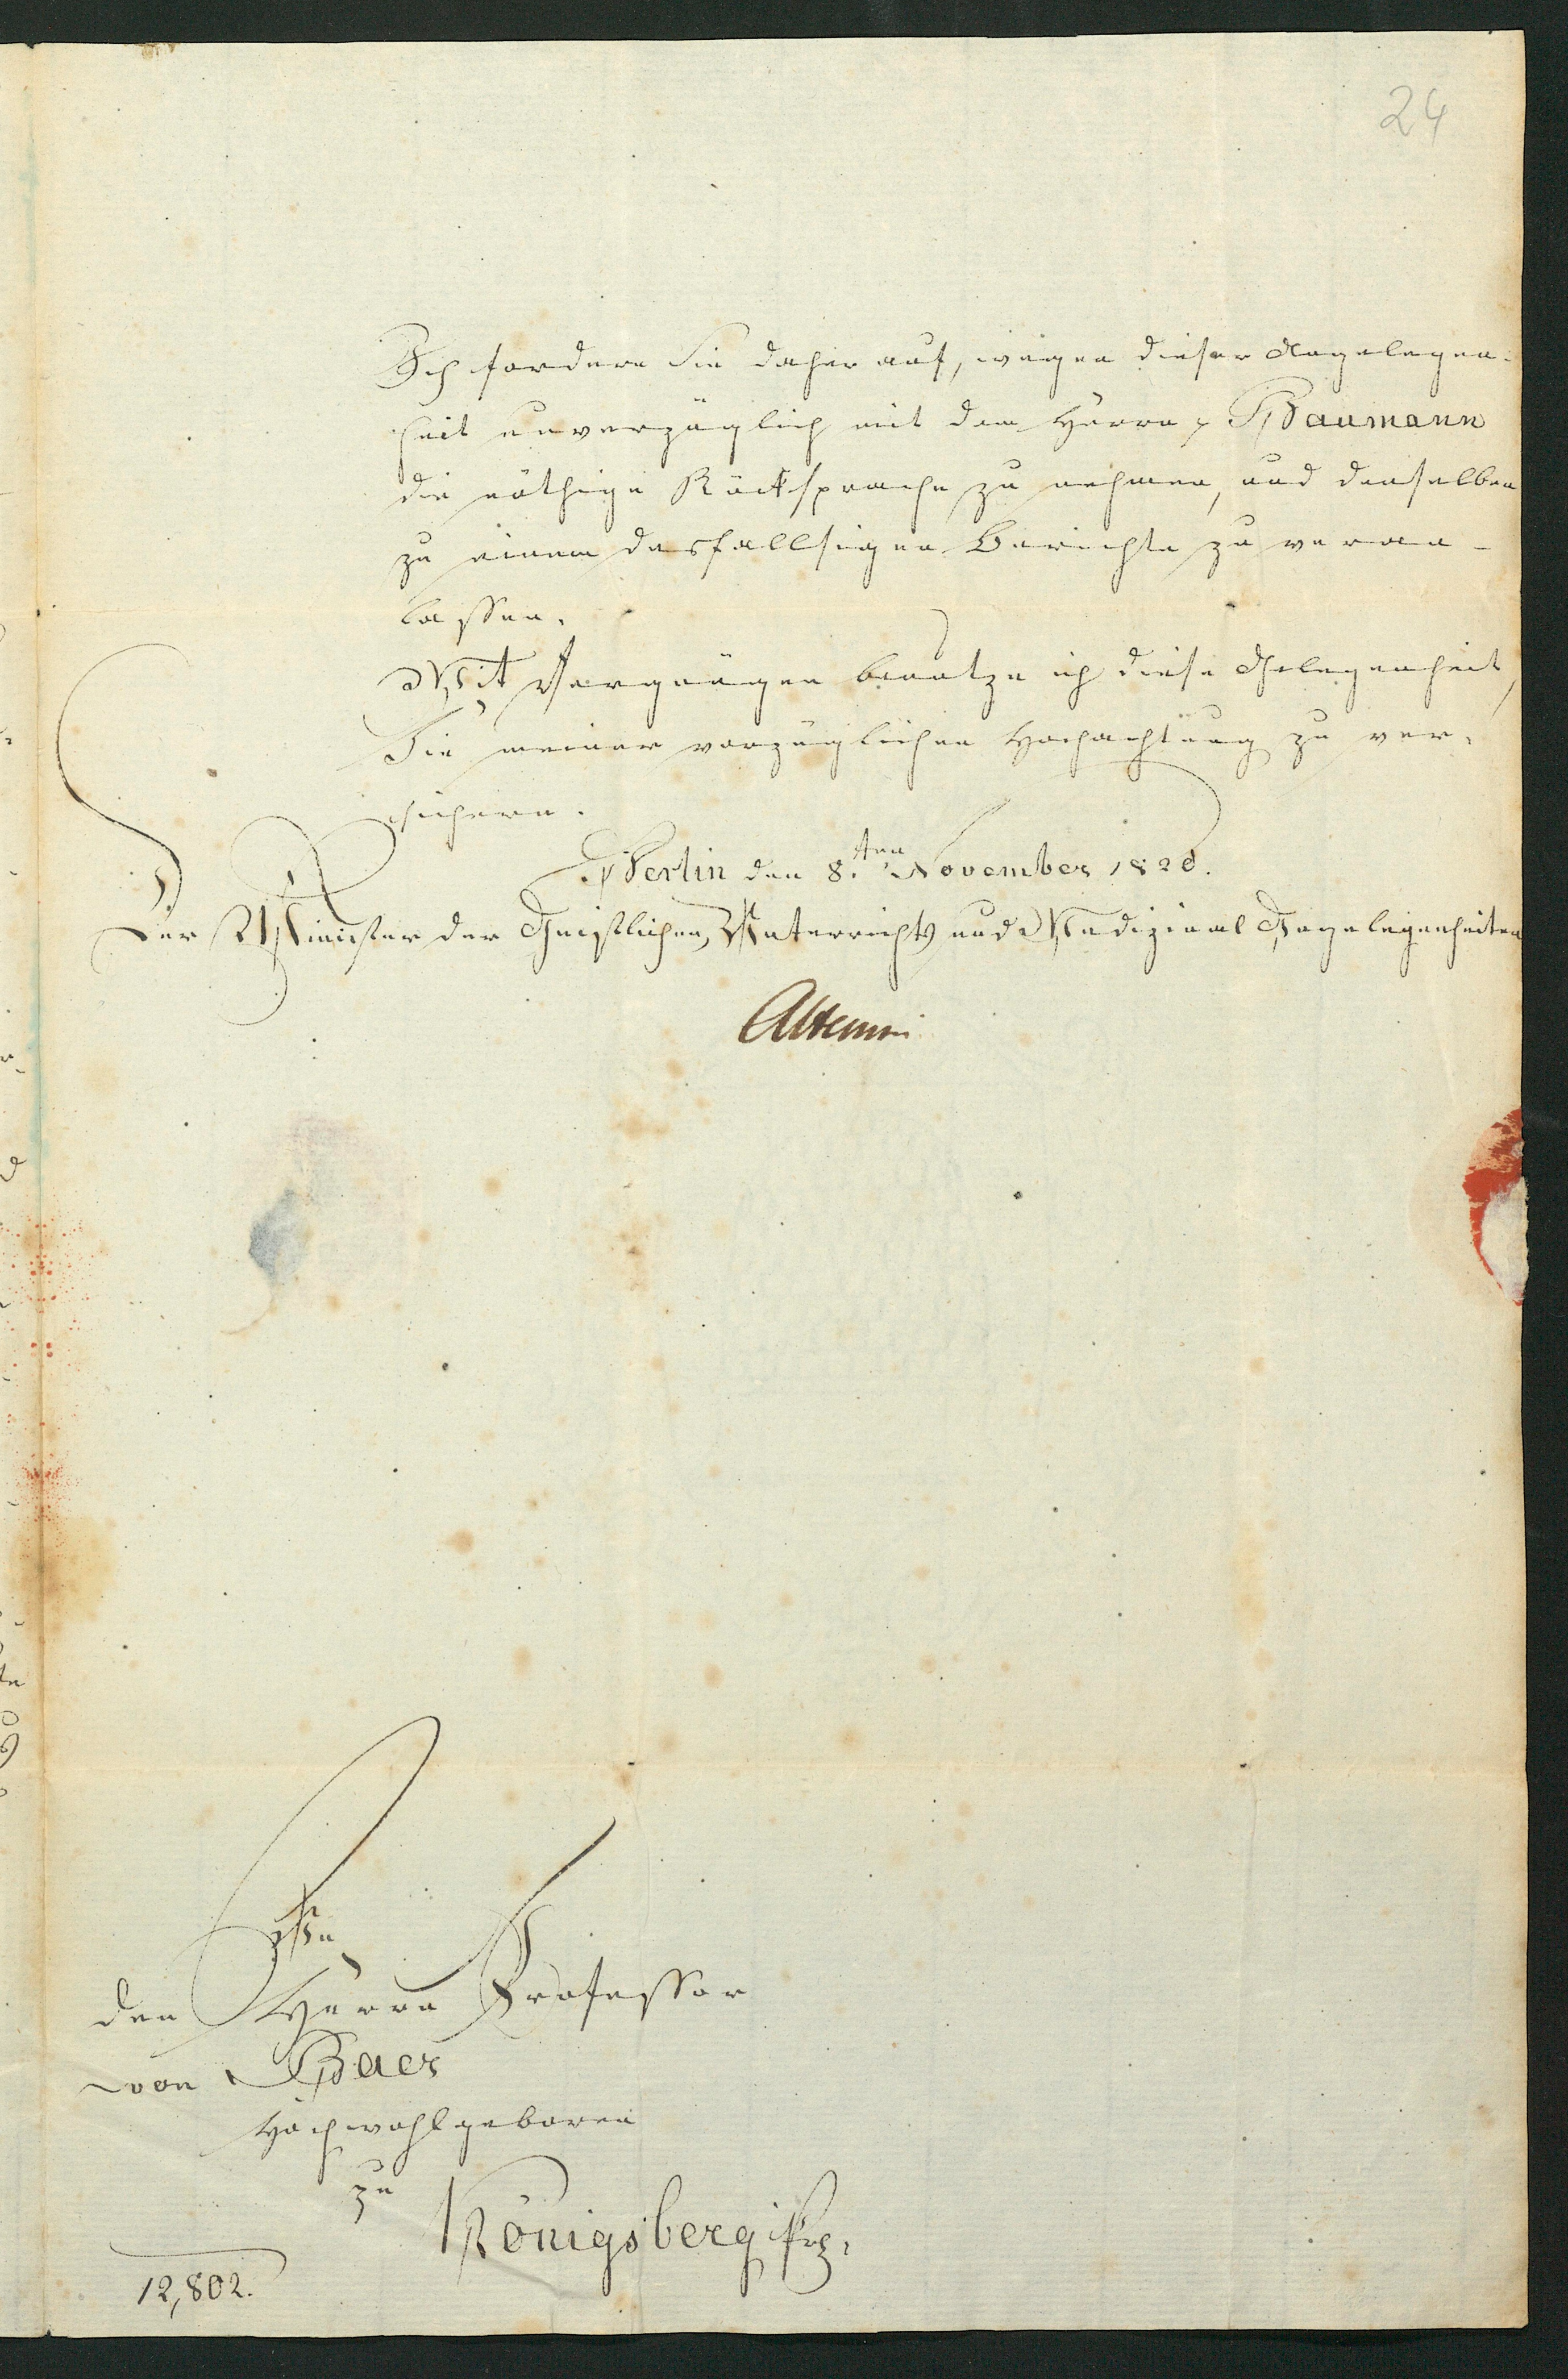 24
Ich fordere Sie daher auf, wegen dieser Angelegen-
heit unverzüglich mit dem Herrn p Baumann
die nöthige Rücksprache zu nehmen, und denselben
zu einem desfallsigen Berichte zu veran-
lassen.
Mit Vergnügen benutze ich diese Gelegenheit,
Sie meiner vorzüglichen Hochachtung zu ver-
sichern.
Berlin den 8.ten November 1828.
Der Minister der Geistlichen, Unterrichts und Medizinal Angelegenheiten
Altenstein
An
den Herrn Professor
von Baer
Hochwohlgeboren
zu
Königsberg i Pr.
12,802.